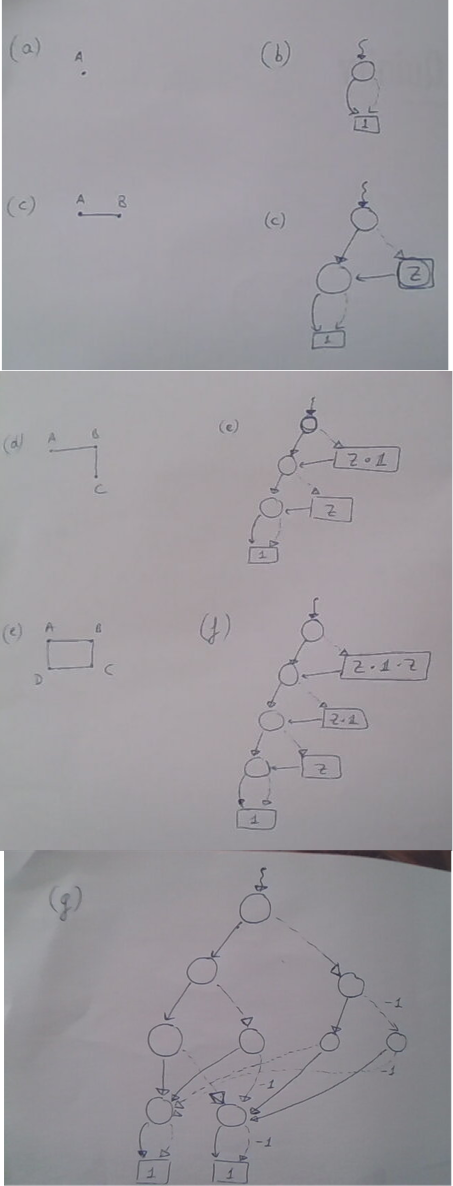 (a)
A
(b)
1
(c)
A B
(c)
Z
1
(d)
A B
C
(e)
Z • 1
Z
1
(e)
A B
D C
(f)
Z · 1 · Z
Z·1
Z
1
(g)
-1
-1
-1
-1
1 1